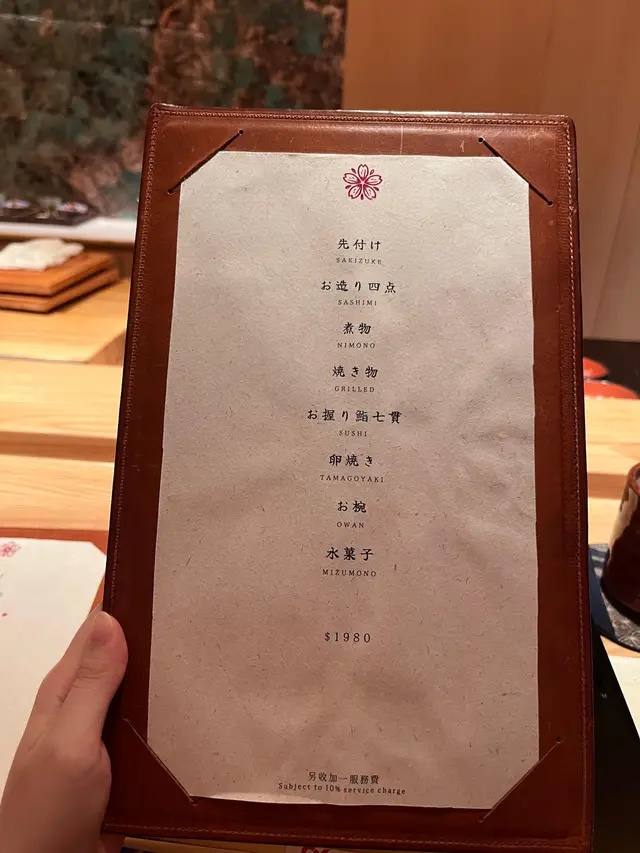 先付け
SAKIZUKE
お造り四点
SASHIMI
煮物
NIMONO
焼き物
GRILLED
お握り鮨七貫
SUSHI
卵焼き
TAMAGOYAKI
お椀
OWAN
水菓子
MIZUMONO
$1980
另收加一服務費
Subject to 10% service charge